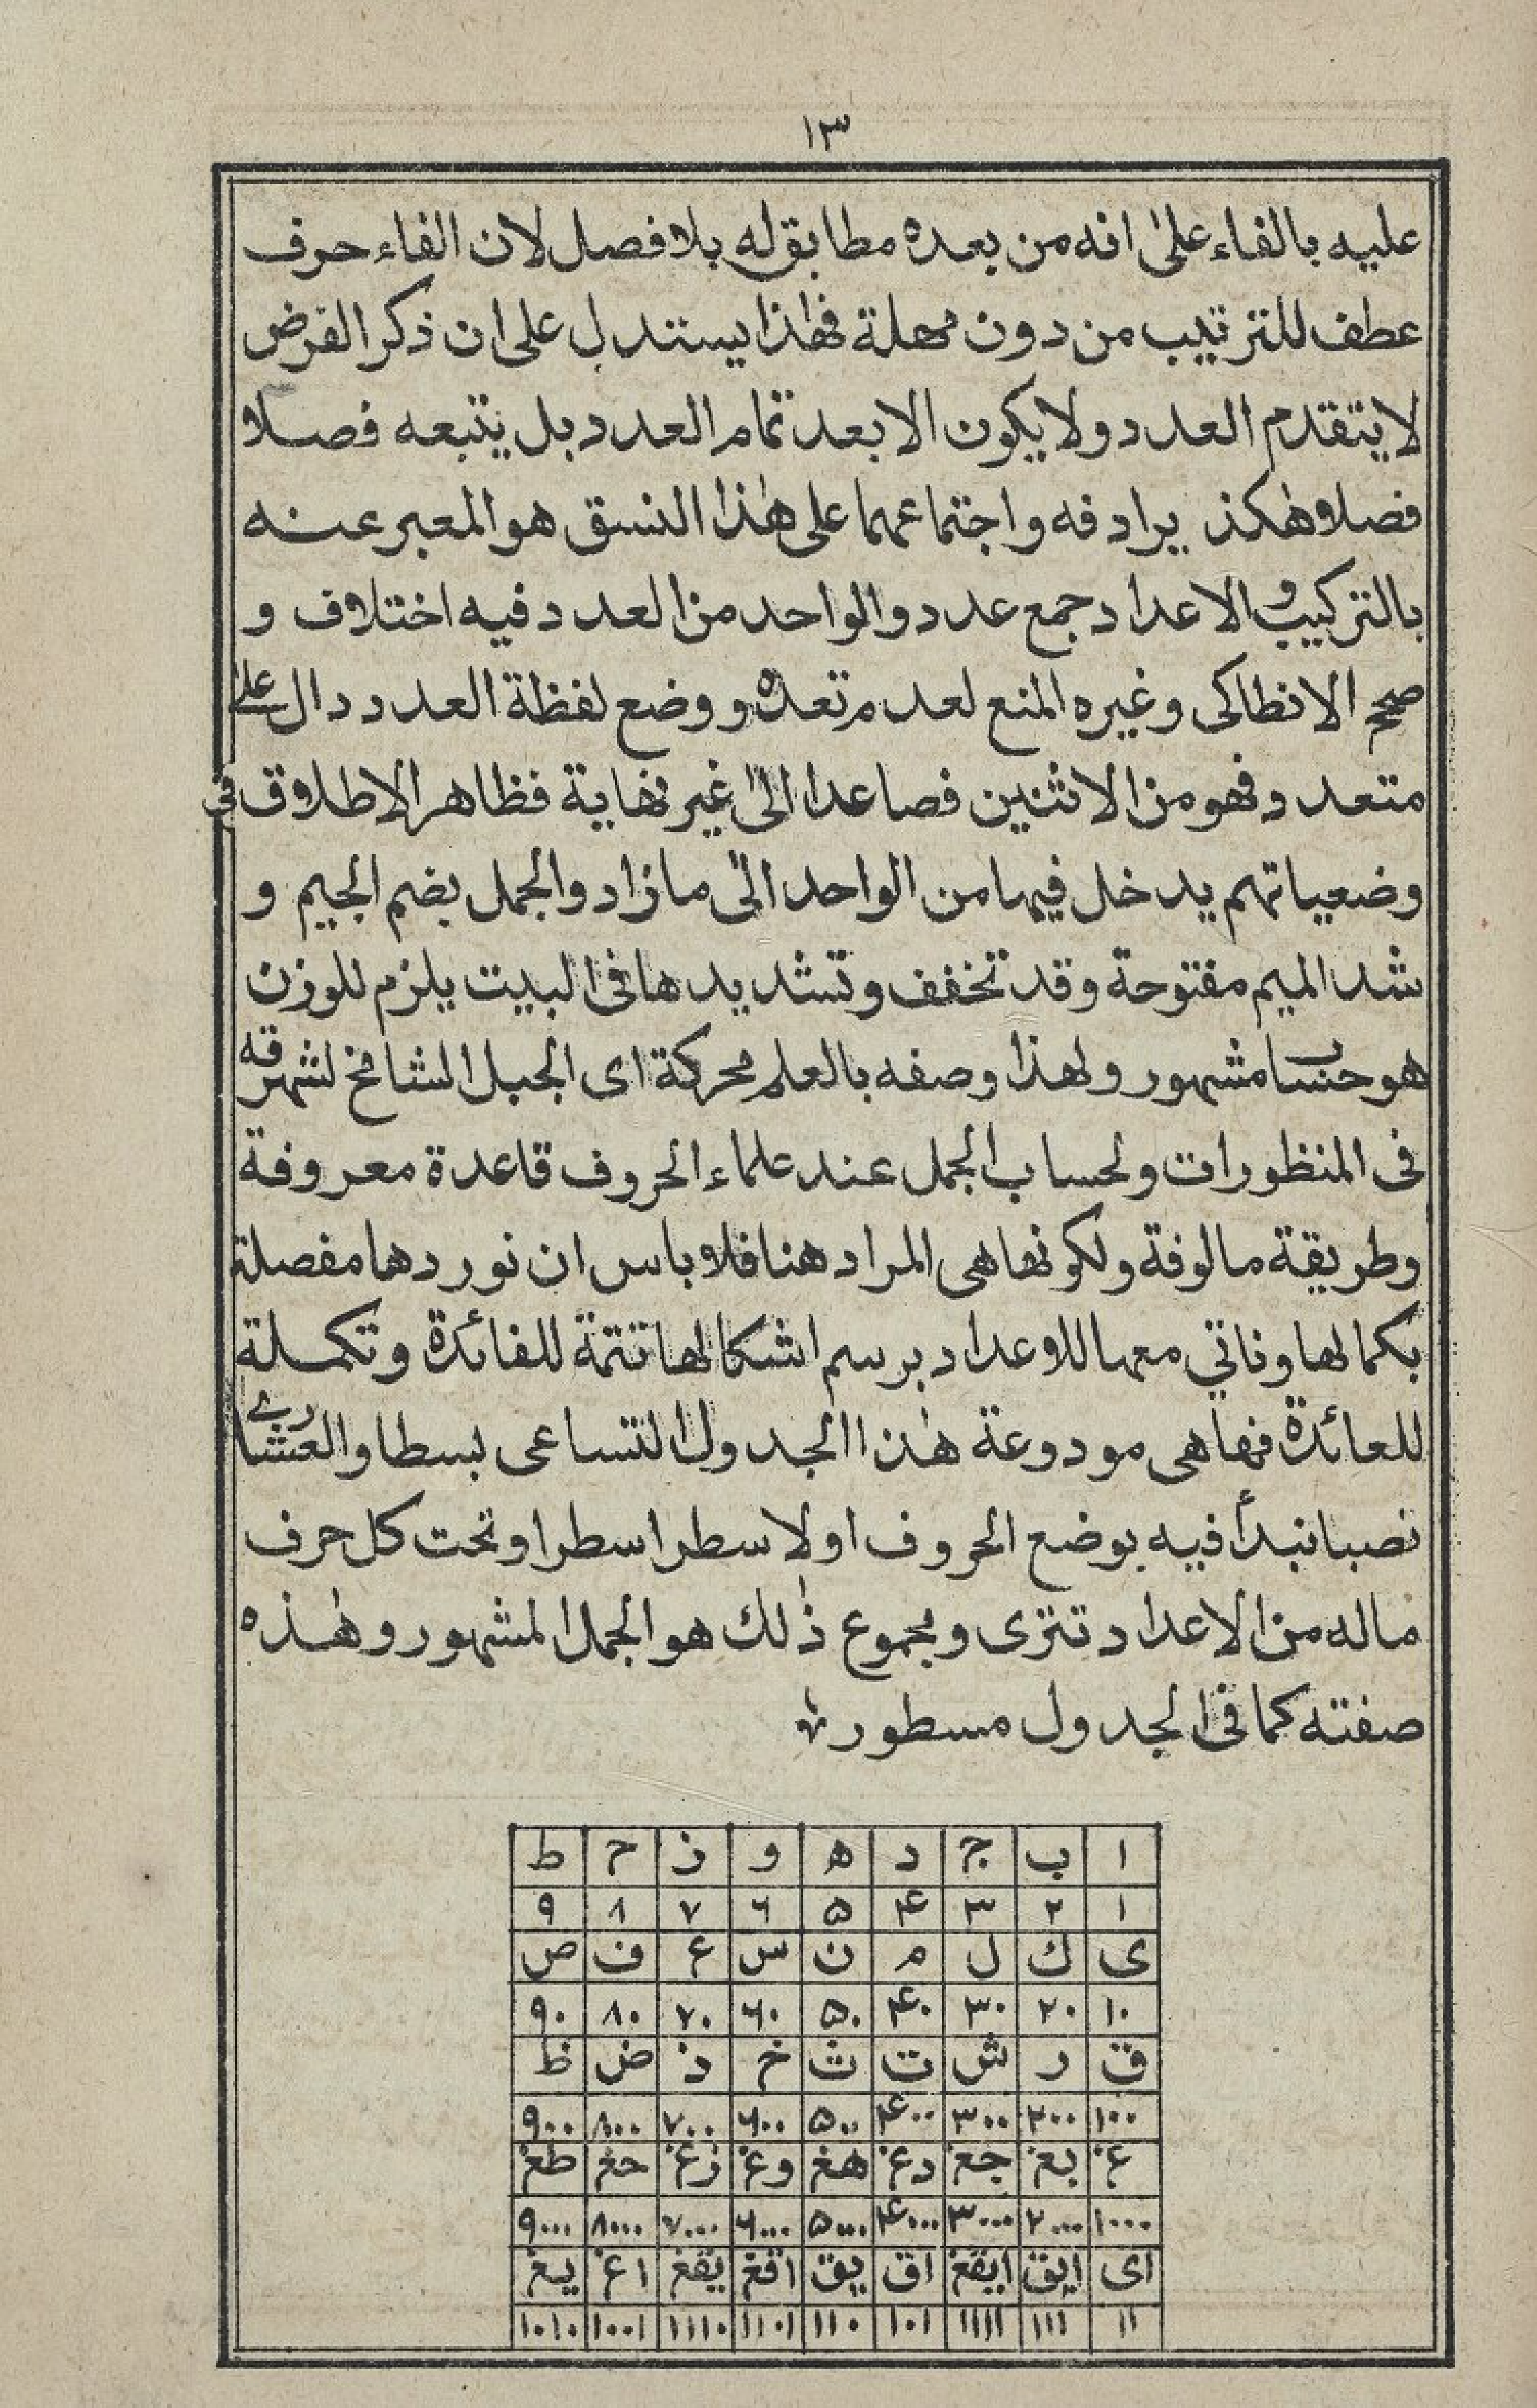 ١٣
عليه بالفاء على انه من بعده مطابق له بلا فصل لان الفاء حرف
عطف للترتيب من دون مهلة فهذا يستدل على ان ذكر الفرض
لا يتقدم العدد ولا يكون الا بعد تمام العدد بل يتبعه فصلا
فصلا وهكذ يرادفه واجتماعهما على هذا النسق هو المعبر عنه
بالتركيب والاعداد جمع عدد والواحد من العدد فيه اختلاف و
صحح الانطاكى وغيره المنع لعدم تعدده ووضع لفظة العدد دال على
متعدد فهو من الاثنين فصاعدا الى غير نهاية فظاهر الاطلاق فى
وضعياتهم يدخل فيها من الواحد الى ما زاد والجمل بضم الجيم و
شد الميم مفتوحة وقد تخفف وتشديدها فى البيت يلزم للوزن
هو حساب مشهور ولهذا وصفه بالعلم محركة اى الجبل الشامخ لشهرته
فى المنظورات ولحساب الجمل عند علماء الحروف قاعدة معروفة
وطريقة مالوفة ولكونها هى المراد هنا فلا باس ان نوردها مفصلة
بكمالها وناتي معها للاعداد برسم اشكالها تتمة للفائدة وتكملة
للعائدة فها هى مودوعة هذا الجدول التساعى بسطا والعشارى
نصبا نبدأ فيه بوضع الحروف اولا سطرا سطرا وتحت كل حرف
ماله من الاعداد تترى ومجموع ذلك هو الجمل المشهور وهذه
صفته كما فى الجدول مسطور
ا ب ج د ه و ز ح ط
١ ٢ ٣ ۴ ۵ ٦ ٧ ٨ ٩
ى ك ل م ن س ع ف ص
١٠ ٢٠ ٣٠ ۴٠ ۵٠ ٦٠ ٧٠ ٨٠ ٩٠
ق ر ش ت ث خ ذ ض ظ
١٠٠ ٢٠٠ ٣٠٠ ۴٠٠ ۵٠٠ ٦٠٠ ٧٠٠ ٨٠٠ ٩٠٠
غ بغ جغ دغ هغ وغ زغ حغ طغ
١٠٠٠ ٢٠٠٠ ٣٠٠٠ ۴٠٠٠ ۵٠٠٠ ٦٠٠٠ ٧٠٠٠ ٨٠٠٠ ٩٠٠٠
اى ايق ايقغ اق يق اقغ يقغ اغ يغ
١١ ١١١ ١١١١ ١٠١ ١١٠ ١١٠١ ١١١٠ ١٠٠١ ١٠١٠